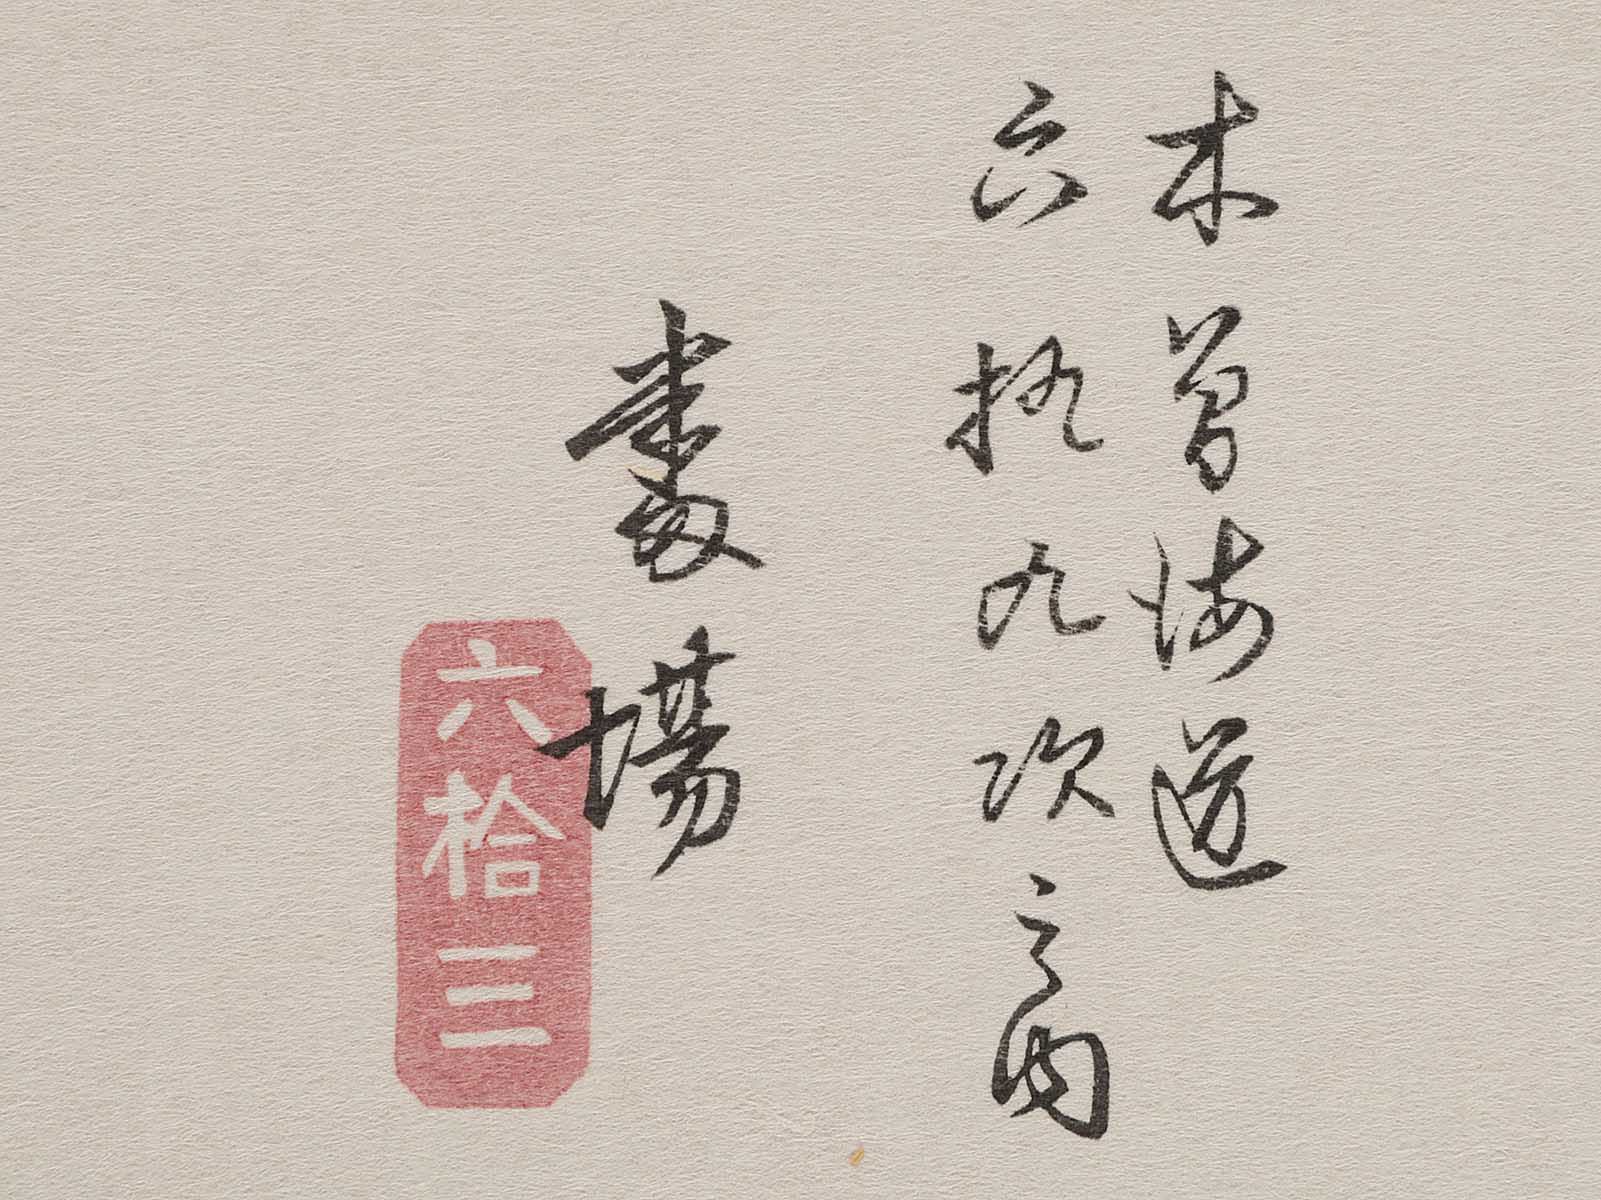 木曾海道
六拾九次之内
番場
六拾三